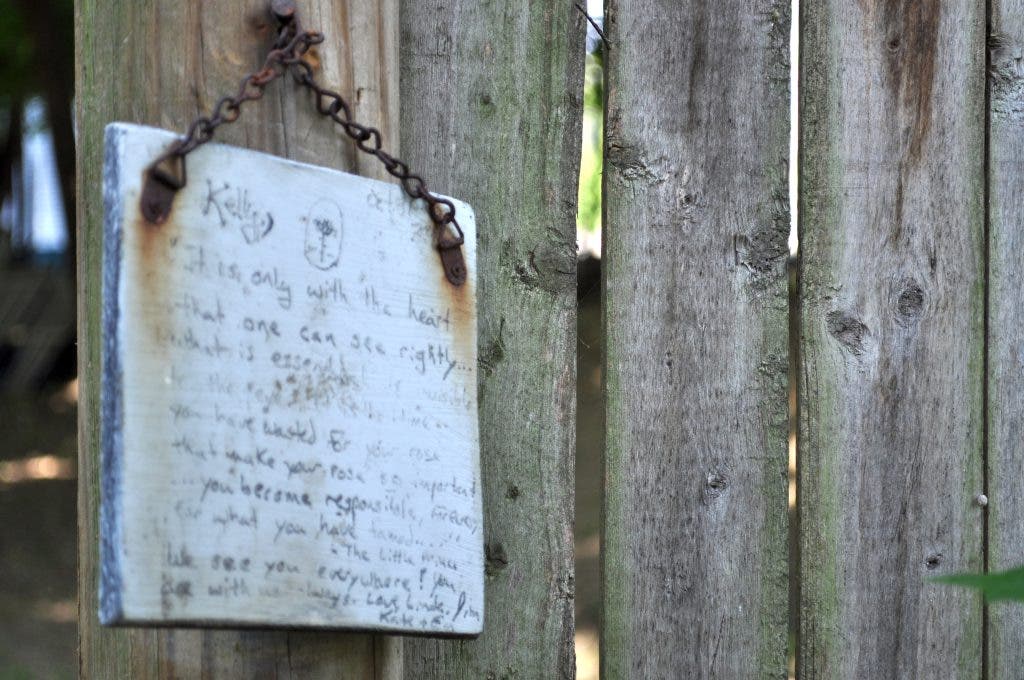 Kelly,
"it is only with the heart
that one can see rightly...
what is essential is invisible
to the eye time..
you have wasted for your rose
that make your rose so important
...you become responsible, forever,
for what you have tamed..."
"The Little Prince
We see you everywhere! You
are with us always. Love, Linda,
Kate +